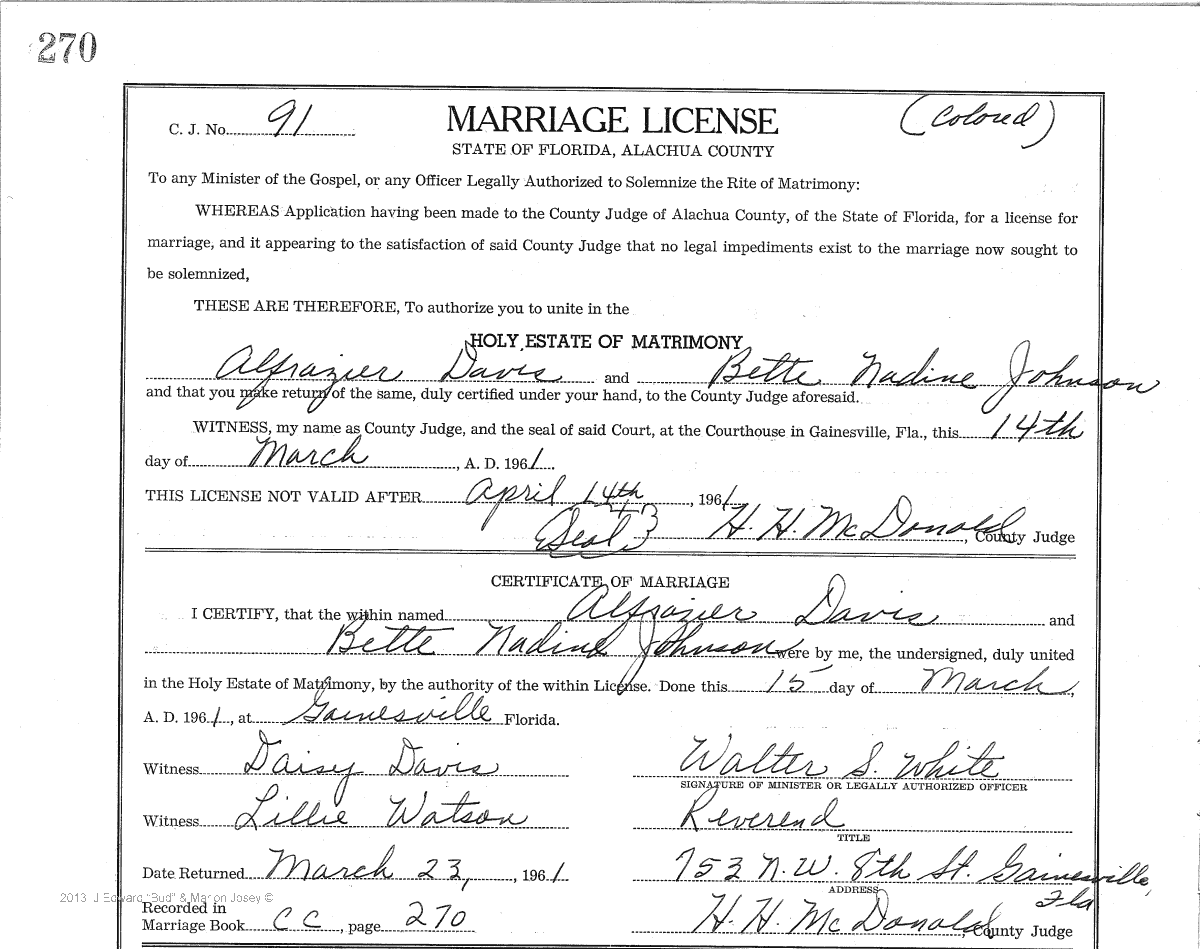 270
C. J. No. 91 MARRIAGE LICENSE (Colored)
STATE OF FLORIDA, ALACHUA COUNTY
To any Minister of the Gospel, or any Officer Legally Authorized to Solemnize the Rite of Matrimony:
WHEREAS Application having been made to the County Judge of Alachua County, of the State of Florida, for a license for
marriage, and it appearing to the satisfaction of said County Judge that no legal impediments exist to the marriage now sought to
be solemnized,
THESE ARE THEREFORE, To authorize you to unite in the
HOLY ESTATE OF MATRIMONY
Alfrazier Davis and Bette Nadine Johnson
and that you make return of the same, duly certified under your hand, to the County Judge aforesaid.
WITNESS, my name as County Judge, and the seal of said Court, at the Courthouse in Gainesville, Fla., this 14th
day of March, A. D. 1961.
THIS LICENSE NOT VALID AFTER April 14th, 1961
(Seal) H. H. McDonald, County Judge
CERTIFICATE OF MARRIAGE
I CERTIFY, that the within named Alfrazier Davis and
Bette Nadine Johnson were by me, the undersigned, duly united
in the Holy Estate of Matrimony, by the authority of the within License. Done this 15 day of March,
A. D. 1961, at Gainesville Florida.
Witness Daisy Davis Walter S. White
SIGNATURE OF MINISTER OR LEGALLY AUTHORIZED OFFICER
Witness Lillie Watson Reverend
TITLE
Date Returned March 23, 1961 753 N.W. 8th St. Gainesville,
ADDRESS Fla
2013 J Edward "Bud" & Marion Josey ©
Recorded in
Marriage Book CC, page 270 H. H. McDonald, County Judge